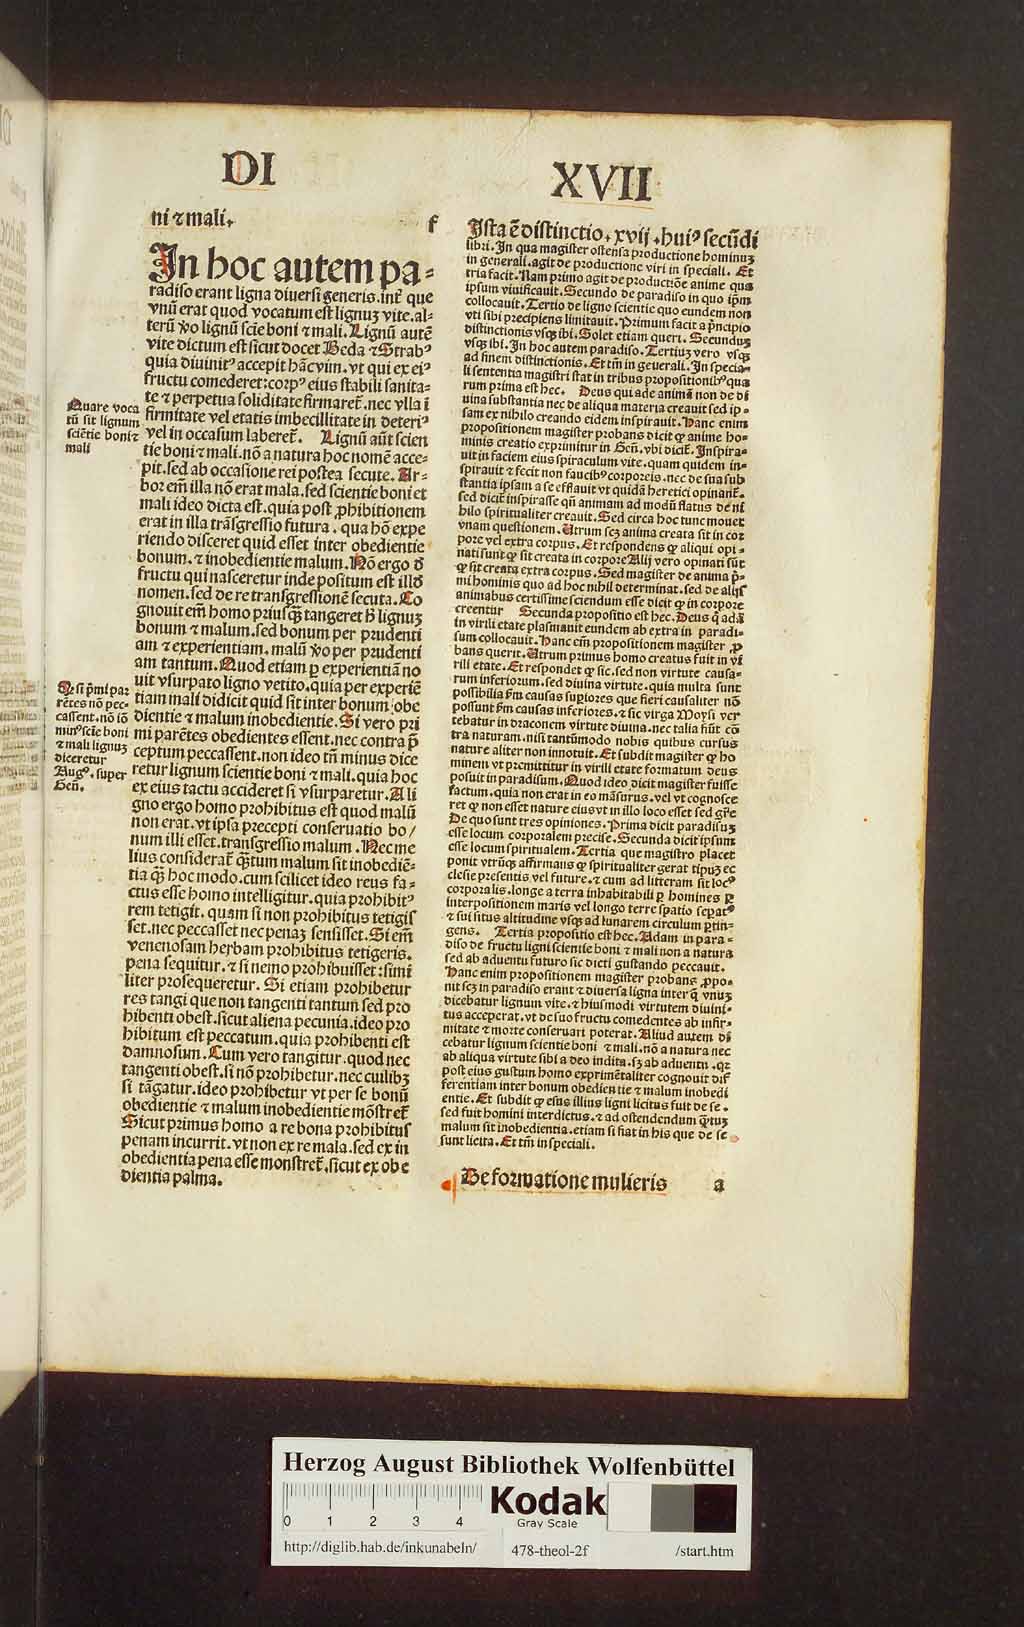 DI
XVII
ni ⁊ mali.
f
In hoc autem pa-
radiso erant ligna diuersi generis.int̃ que
vnũ erat quod vocatum est lignuʒ vite.al-
terũ ṽo lignũ scĩe boni ⁊ mali. Lignũ autẽ
vite dictum est sicut docet Beda ⁊ Strabꝰ
quia diuinitꝰ accepit hãc vim.vt qui ex eiꝰ
fructu comederet:corpꝰ eius stabili sanita-
te ⁊ perpetua soliditate firmaret̃.nec vlla ĩ
firmitate vel etatis imbecillitate in deteriꝰ
vel in occasum laberet̃. Lignũ aũt scien
tie boni ⁊ mali.nõ a natura hoc nomẽ acce-
pit.sed ab occasione rei postea secute. Ar-
bor em̃ illa nõ erat mala.sed scientie boni et
mali ideo dicta est.quia post ꝓhibitionem
erat in illa trãsgressio futura.qua hõ expe
riendo disceret quid esset inter obedientie
bonum.⁊ inobedientie malum. Nõ ergo d̃
fructu qui nasceretur inde positum est illd̃
nomen.sed de re transgressionẽ secuta. Co
gnouit em̃ homo priusq̃ʒ tangeret h̃ lignuʒ
bonum ⁊ malum.sed bonum per prudenti
am ⁊ experientiam.malũ ṽo per prudenti
am tantum. Quod etiam ꝑ experientiã no
uit vsurpato ligno vetito.quia per experiẽ
tiam mali didicit quid sit inter bonum obe
dientie ⁊ malum inobedientie. Si vero pri
mi parẽtes obedientes essent.nec contra p̃
ceptum peccassent.non ideo tñ minus dice
retur lignum scientie boni ⁊ mali.quia hoc
ex eius tactu accideret si vsurparetur. A li
gno ergo homo prohibitus est quod malũ
non erat.vt ipsa precepti conseruatio bo/
num illi esset.transgressio malum. Nec me
lius considerat̃ q̃ʒtum malum sit inobediẽ-
tia q̃ʒ hoc modo.cum scilicet ideo reus fa-
ctus esse homo intelligitur.quia prohibitꝰ
rem tetigit.quam si non prohibitus tetigis
set.nec peccasset nec penaʒ sensisset. Si em̃
venenosam herbam prohibitus tetigeris.
pena sequitur.⁊ si nemo prohibuisset:simi
liter prosequeretur. Si etiam prohibetur
res tangi que non tangenti tantum sed pro
hibenti obest.sicut aliena pecunia.ideo pro
hibitum est peccatum.quia prohibenti est
damnosum. Cum vero tangitur.quod nec
tangenti obest.si nõ prohibetur.nec cuilibʒ
si tãgatur.ideo prohibetur vt per se bonũ
obedientie ⁊ malum inobedientie mõstret̃
Sicut primus homo a re bona prohibitus
penam incurrit.vt non ex re mala.sed ex in
obedientia pena esse monstret̃.sicut ex obe
dientia palma.
Quare voca
tũ sit lignum
sciẽtie boni ⁊
mali
Et si p̃mi pa
rẽtes nõ pec-
cassent.nõ iõ
minꝰ scĩe boni
⁊ mali lignuʒ
diceretur
Augꝰ.super
Geñ.
Ista ẽ distinctio.xvij.huiꝰ secũdi
libri. In qua magister ostensa productione hominuʒ
in generali.agit de productione viri in speciali. Et
tria facit. Nam primo agit de productiõe anime qua
ipsum viuificauit. Secundo de paradiso in quo ip̃m
collocauit. Tertio de ligno scientie quo eundem non
vti sibi precipiens limitauit. Primum facit a p̃ncipio
distinctionis vsqʒ ibi. Solet etiam queri. Secunduʒ
vsqʒ ibi. In hoc autem paradiso. Tertiuʒ vero vsqʒ
ad finem distinctionis. Et tm̃ in generali. In specia-
li sententia magistri stat in tribus propositionibꝰ qua
rum prima est hec. Deus qui ade animã non de di
uina substantia nec de aliqua materia creauit sed ip-
sam ex nihilo creando eidem inspirauit. Hanc enim
propositionem magister probans dicit ꝙ anime ho-
minis creatio exprimitur in Geñ. vbi dicit̃. Inspira-
uit in faciem eius spiraculum vite.quam quidem in-
spirauit ⁊ fecit non faucibꝰ corporeis.nec de sua sub
stantia ipsam a se efflauit vt quidã heretici opinant̃.
sed dicit̃ inspirasse qñ animam ad modũ flatus de ni
hilo spiritualiter creauit. Sed circa hoc tunc mouet
vnam questionem. Utrum scʒ anima creata sit in cor
pore vel extra corpus. Et respondens ꝙ aliqui opi-
nati sunt ꝙ sit creata in corpore Alij vero opinati sũt
ꝙ sit creata extra corpus. Sed magister de anima p̃-
mi hominis quo ad hoc nihil determinat.sed de alijs
animabus certissime sciendum esse dicit ꝙ in corpore
creentur Secunda propositio est hec. Deus q̃ adã
in virili etate plasmauit eundem ab extra in paradi-
sum collocauit. Hanc em̃ propositionem magister ꝓ
bans querit. Utrum primus homo creatus fuit in vi
rili etate. Et respondet ꝙ sic.sed non virtute causa-
rum inferiorum.sed diuina virtute.quia multa sunt
possibilia ẜm causas suꝑiores que fieri causaliter nõ
possunt ẜm causas inferiores.⁊ sic virga Moysi ver
tebatur in draconem virtute diuina.nec talia fiũt cõ
tra naturam.nisi tantũmodo nobis quibus cursus
nature aliter non innotuit. Et subdit magister ꝙ ho
minem vt premittitur in virili etate formatum deus
posuit in paradisum. Quod ideo dicit magister fuisse
factum.quia non erat in eo mãsurus.vel vt cognosce
ret ꝙ non esset nature eius vt in illo loco esset sed gr̃e
De quo sunt tres opiniones. Prima dicit paradisuʒ
esse locum corporalem precise. Secunda dicit ipsum
esse locum spiritualem. Tertia que magistro placet
ponit vtrũqʒ affirmans ꝙ spiritualiter gerat tipuʒ ec
clesie presentis vel future.⁊ cum ad litteram sit locꝰ
corporalis.longe a terra inhabitabili ꝑ homines ꝑ
interpositionem maris vel longo terre spatio seꝑatꝰ
⁊ sui situs altitudine vsqʒ ad lunarem circulum ꝑtin-
gens. Tertia propositio est hec. Adam in para-
diso de fructu ligni scientie boni ⁊ mali non a natura
sed ab aduentu futuro sic dicti gustando peccauit.
Hanc enim propositionem magister probans ꝓpo-
nit scʒ in paradiso erant ⁊ diuersa ligna inter q̃ vnuʒ
dicebatur lignum vite.⁊ hiusmodi virtutem diuini-
tus acceperat.vt de suo fructu comedentes ab infir-
mitate ⁊ morte conseruari poterat. Aliud autem di
cebatur lignum scientie boni ⁊ mali.nõ a natura nec
ab aliqua virtute sibi a deo indita.sʒ ab aduentu.qꝛ
post eius gustum homo exprimẽtaliter cognouit dif
ferentiam inter bonum obedientie ⁊ malum inobedi
entie. Et subdit ꝙ esus illius ligni licitus fuit de se.
sed fuit homini interdictus.⁊ ad ostendendum q̃tuʒ
malum sit inobedientia.etiam si fiat in his que de se
sunt licita. Et tm̃ in speciali.
De formatione mulieris
a
Herzog August Bibliothek Wolfenbüttel
0 1 2 3 4
Kodak
Gray Scale
http://diglib.hab.de/inkunabeln/
478-theol-2f
/start.htm